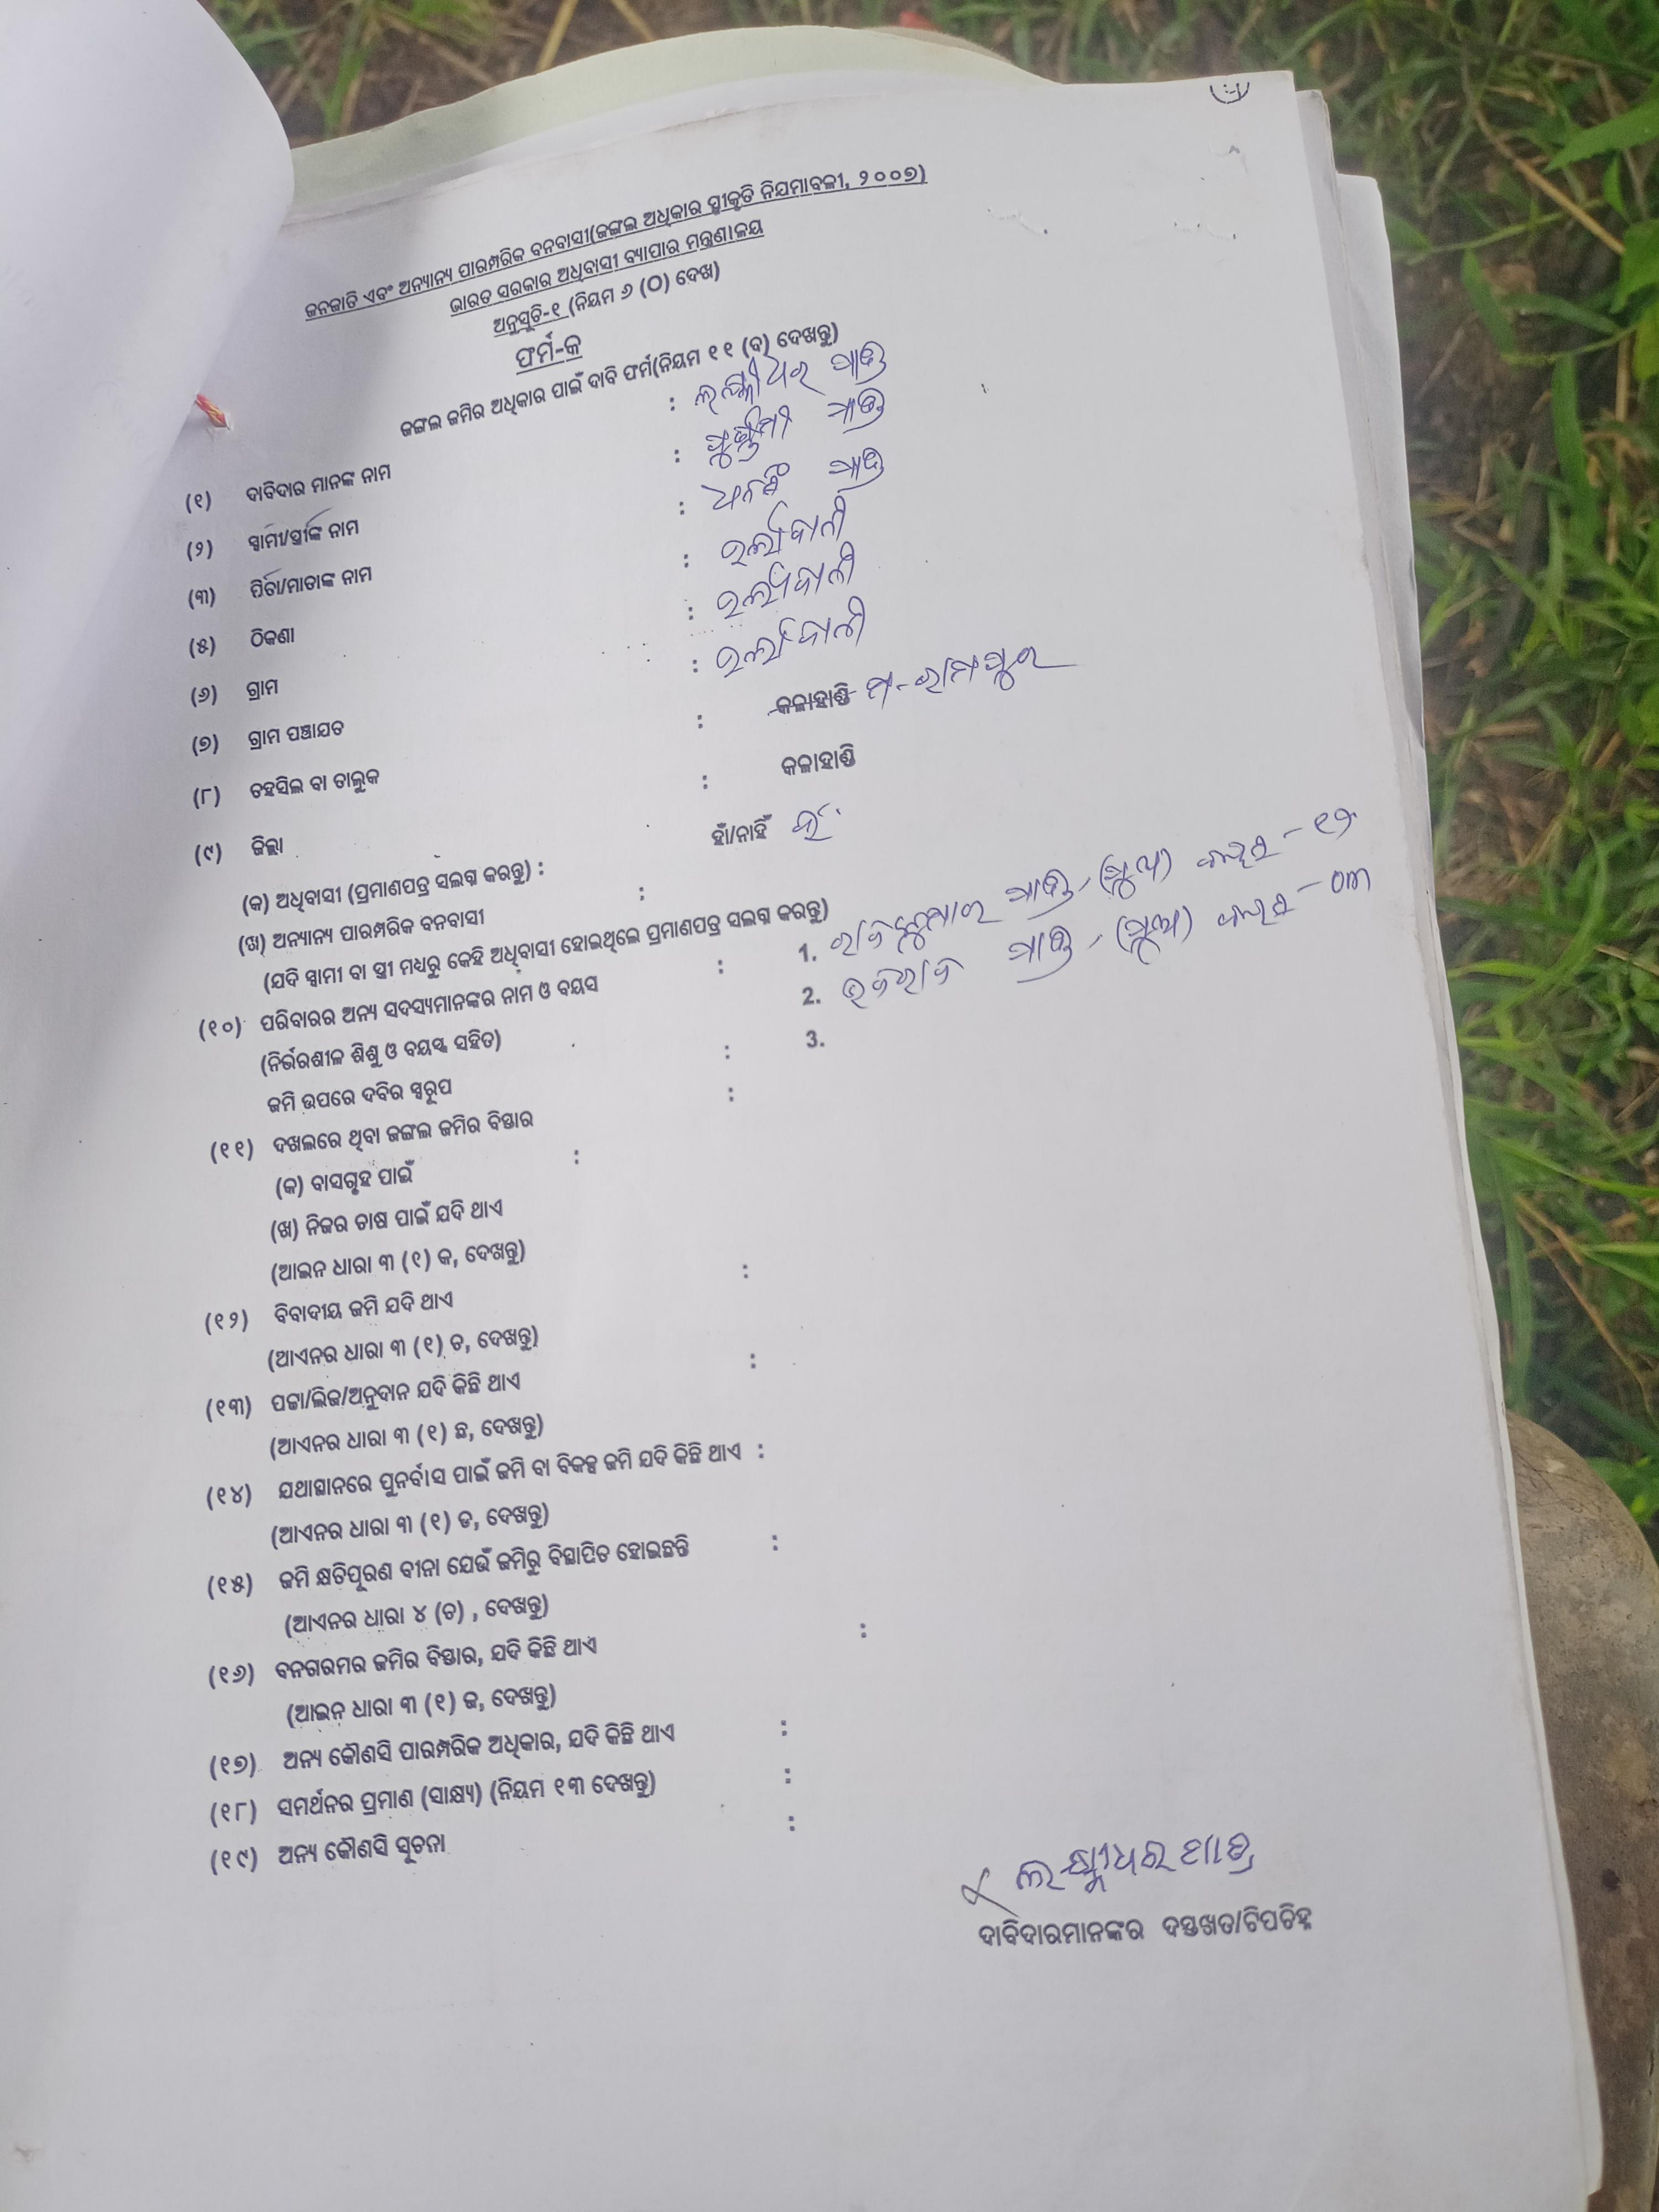 ଜନଜାତି ଏବଂ ଅନ୍ୟାନ୍ୟ ପାରମ୍ପରିକ ବନବାସୀ(ଜଙ୍ଗଲ ଅଧିକାର ସ୍ୱୀକୃତି ନିୟମାବଳୀ, ୨୦୦୭)
ଭାରତ ସରକାର ଅଧିବାସୀ ବ୍ୟାପାର ମନ୍ତ୍ରଣାଳୟ
ଅନୁସୂଚି-୧ (ନିୟମ ୬ (ଠ) ଦେଖ)
ଫର୍ମ-କ
ଜଙ୍ଗଲ ଜମିର ଅଧିକାର ପାଇଁ ଦାବି ଫର୍ମ(ନିୟମ ୧୧ (କ) ଦେଖନ୍ତୁ)
(୧) ଦାବିଦାର ମାନଙ୍କ ନାମ : ଲକ୍ଷ୍ମୀଧର ପାତ୍ର
(୨) ସ୍ୱାମୀ/ସ୍ତ୍ରୀଙ୍କ ନାମ : ପାତ୍ର
(୩) ପିତା/ମାତାଙ୍କ ନାମ : ପାତ୍ର
(୫) ଠିକଣା :
(୬) ଗ୍ରାମ :
(୭) ଗ୍ରାମ ପଞ୍ଚାୟତ :
(୮) ତହସିଲ ବା ତାଲୁକ : କଳାହାଣ୍ଡି ମ-ରାମପୁର
(୯) ଜିଲ୍ଲା : କଳାହାଣ୍ଡି
(କ) ଅଧିବାସୀ (ପ୍ରମାଣପତ୍ର ସଲଗ୍ନ କରନ୍ତୁ) : ହଁ/ନାହିଁ
(ଖ) ଅନ୍ୟାନ୍ୟ ପାରମ୍ପରିକ ବନବାସୀ :
(ଯଦି ସ୍ୱାମୀ ବା ସ୍ତ୍ରୀ ମଧ୍ୟରୁ କେହି ଅଧିବାସୀ ହୋଇଥିଲେ ପ୍ରମାଣପତ୍ର ସଲଗ୍ନ କରନ୍ତୁ)
(୧୦) ପରିବାରର ଅନ୍ୟ ସଦସ୍ୟମାନଙ୍କର ନାମ ଓ ବୟସ : 1. ପାତ୍ର (ପୁଅ)
(ନିର୍ଭରଶୀଳ ଶିଶୁ ଓ ବୟସ୍କ ସହିତ) 2. ପାତ୍ର (ପୁଅ)
ଜମି ଉପରେ ଦବିର ସ୍ୱରୂପ : 3.
(୧୧) ଦଖଲରେ ଥିବା ଜଙ୍ଗଲ ଜମିର ବିସ୍ତାର :
(କ) ବାସଗୃହ ପାଇଁ :
(ଖ) ନିଜର ଚାଷ ପାଇଁ ଯଦି ଥାଏ
(ଆଇନ ଧାରା ୩ (୧) କ, ଦେଖନ୍ତୁ)
(୧୨) ବିବାଦୀୟ ଜମି ଯଦି ଥାଏ :
(ଆଏନର ଧାରା ୩ (୧) ଚ, ଦେଖନ୍ତୁ)
(୧୩) ପଟ୍ଟା/ଲିଜ/ଅନୁଦାନ ଯଦି କିଛି ଥାଏ :
(ଆଏନର ଧାରା ୩ (୧) ଛ, ଦେଖନ୍ତୁ)
(୧୪) ଯଥାସ୍ଥାନରେ ପୁନର୍ବାସ ପାଇଁ ଜମି ବା ବିକଳ୍ପ ଜମି ଯଦି କିଛି ଥାଏ :
(ଆଏନର ଧାରା ୩ (୧) ଡ, ଦେଖନ୍ତୁ)
(୧୫) ଜମି କ୍ଷତିପୂରଣ ବୀନା ଯେଉଁ ଜମିରୁ ବିସ୍ଥାପିତ ହୋଇଛନ୍ତି :
(ଆଏନର ଧାରା ୪ (ଚ) , ଦେଖନ୍ତୁ)
(୧୬) ବନଗରମର ଜମିର ବିସ୍ତାର, ଯଦି କିଛି ଥାଏ :
(ଆଇନ ଧାରା ୩ (୧) ଜ, ଦେଖନ୍ତୁ)
(୧୭) ଅନ୍ୟ କୌଣସି ପାରମ୍ପରିକ ଅଧିକାର, ଯଦି କିଛି ଥାଏ :
(୧୮) ସମର୍ଥନର ପ୍ରମାଣ (ସାକ୍ଷ୍ୟ) (ନିୟମ ୧୩ ଦେଖନ୍ତୁ) :
(୧୯) ଅନ୍ୟ କୌଣସି ସୂଚନା :
ଲକ୍ଷ୍ମୀଧର ପାତ୍ର
ଦାବିଦାରମାନଙ୍କର ଦସ୍ତଖତ/ଟିପଚିହ୍ନ